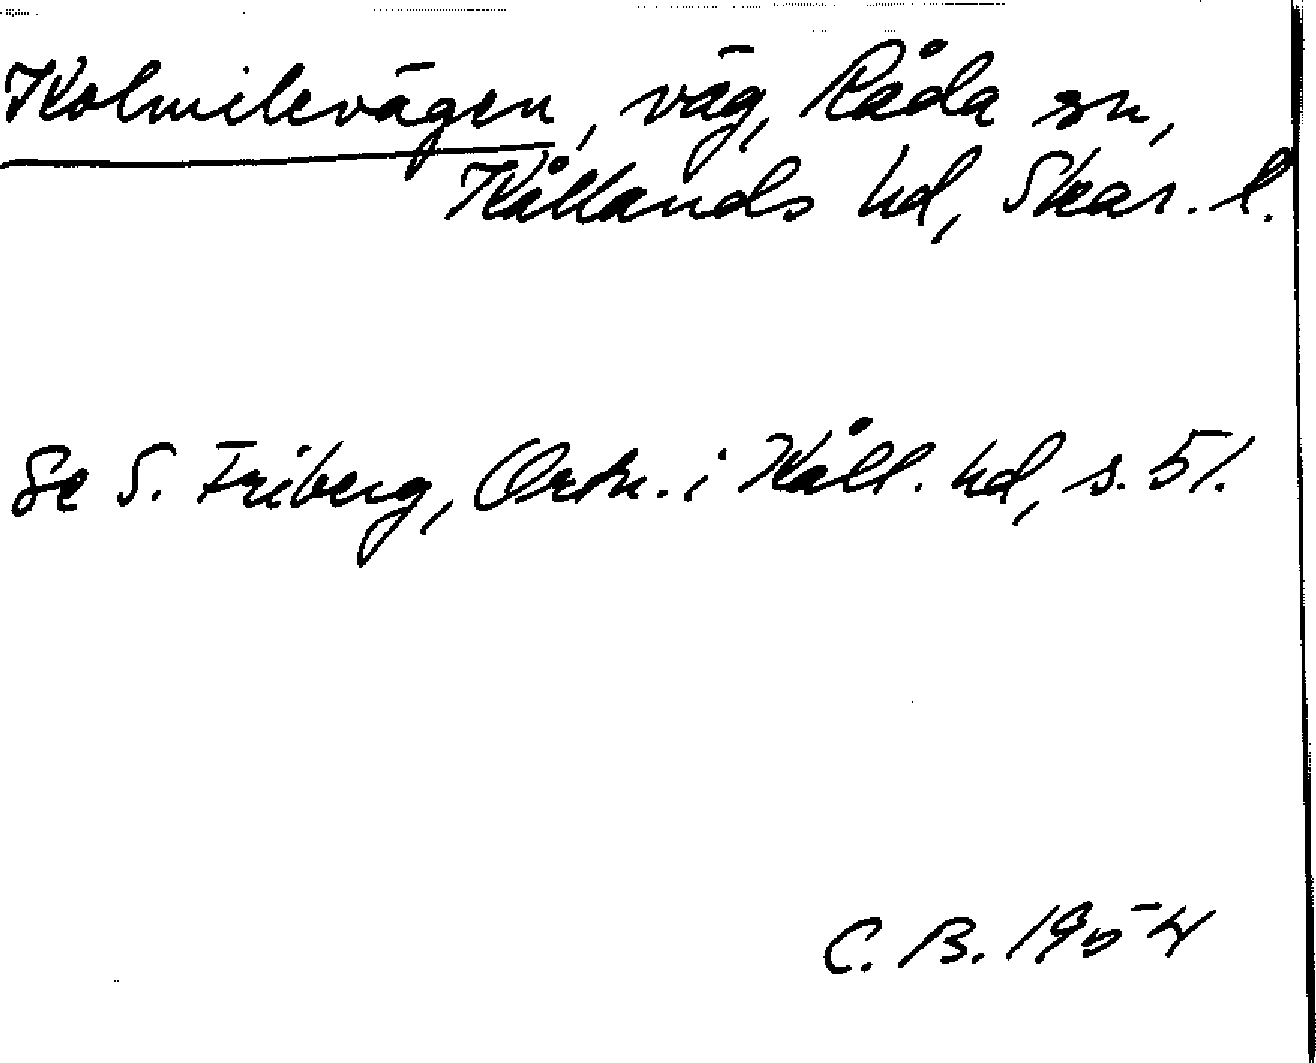 Kolmilevägen, väg, Råda sn,
Kållands hd, Skar. l.
Se S. Friberg, Ortn. i Kåll. hd, s. 51.
C. B. 1954